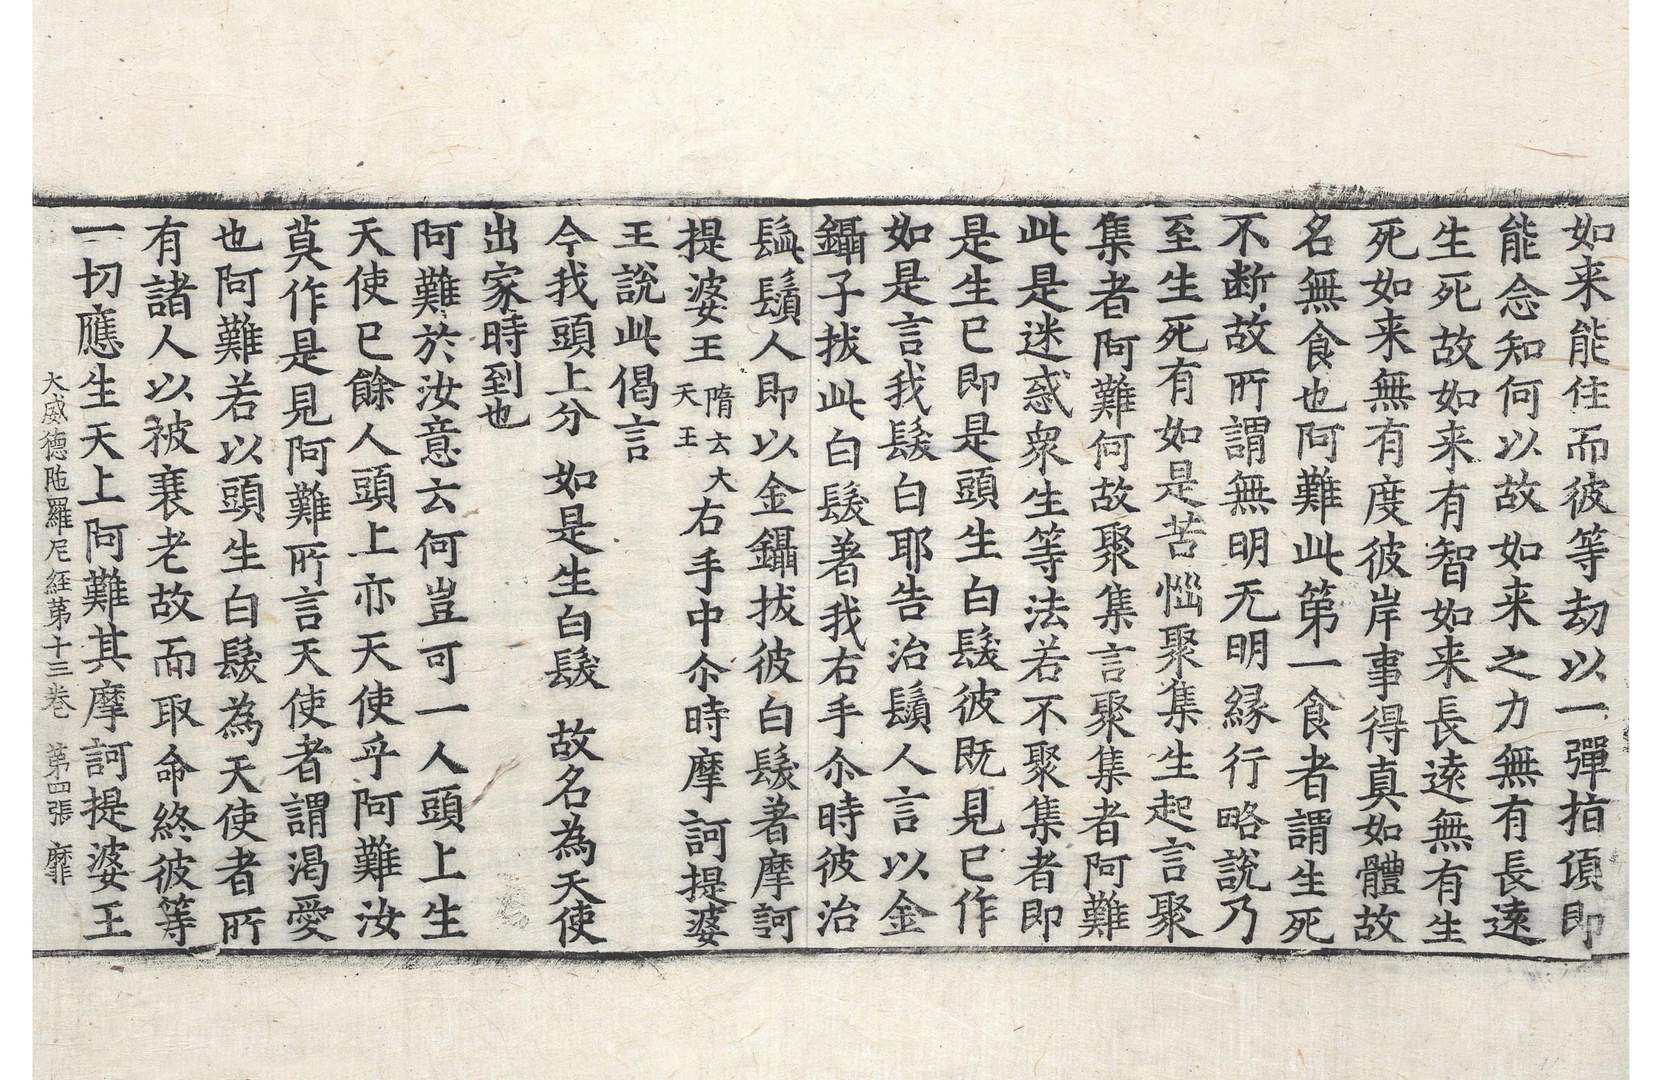 如来能住而彼等劫以一彈指頃即
能念知何以故如来之力無有長遠
生死故如来有智如来長遠無有生
死如来無有度彼岸事得真如體故
名無食也阿難此第一食者謂生死
不断故所謂無明无明緣行略說乃
至生死有如是苦惱聚集生起言聚
集者阿難何故聚集言聚集者阿難
此是迷惑衆生等法若不聚集者即
是生已即是頭生白髮彼既見已作
如是言我髮白耶告治鬚人言以金
鑷子拔此白髮著我右手尒時彼治
鬚人即以金鑷拔彼白髮著摩訶
提婆王隋云大天王右手中尒時摩訶提婆
王說此偈言
今我頭上分　如是生白髮　故名為天使
出家時到也
阿難於汝意云何豈可一人頭上生
天使已餘人頭上亦天使乎阿難汝
莫作是見阿難所言天使者謂渴愛
也阿難若以頭生白髮為天使者所
有諸人以被衰老故而取命終彼等
一切應生天上阿難其摩訶提婆王
大威德陁羅尼經第十三卷　第四張　靡